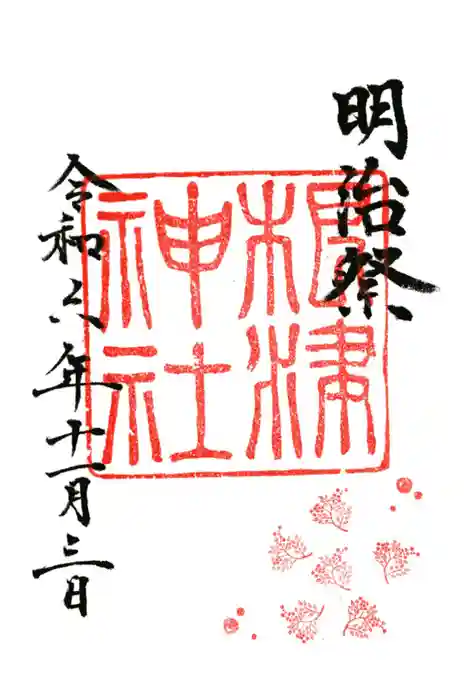 明治祭
根津
神社
令和六年十一月三日